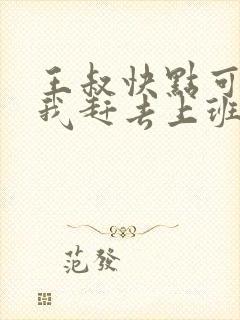 王叔快點可
我赶去上班
范發